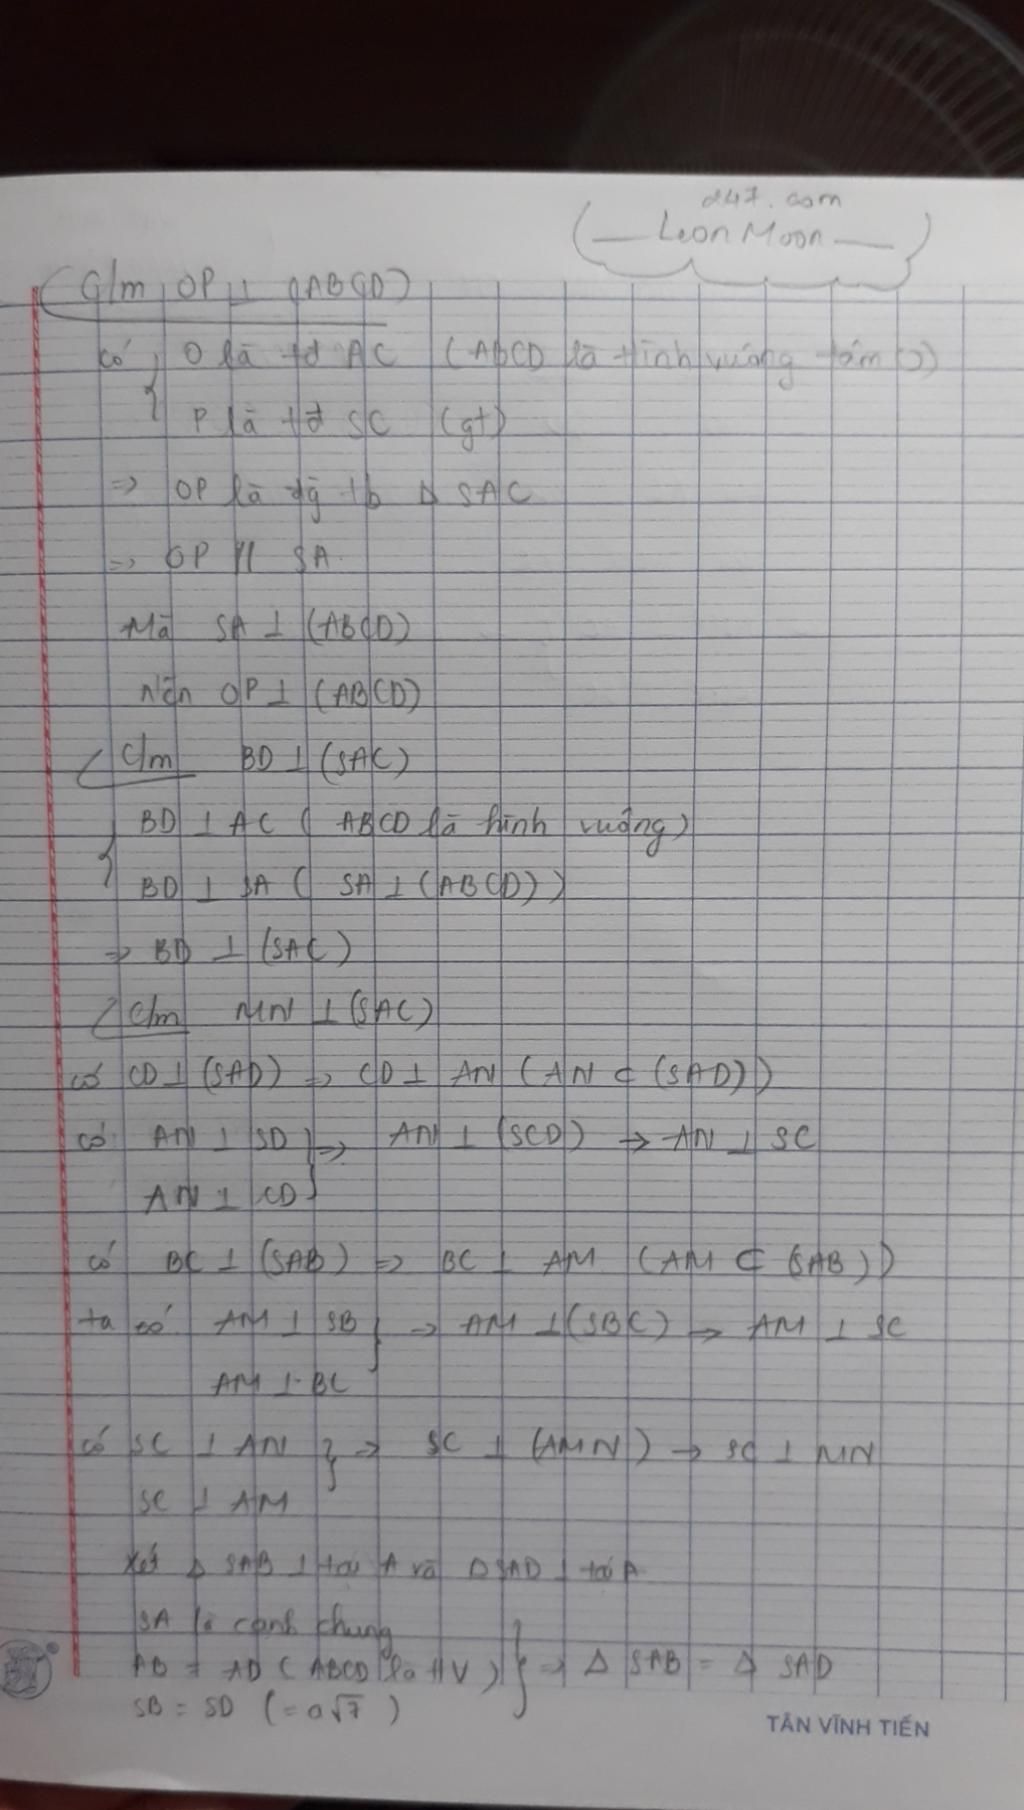 247.com
( — Leon Moon — )
C/m OP ⊥ (ABCD)
có { O là tđ AC ( ABCD là hình vuông tâm O)
P là tđ SC (gt)
=> OP là đg tb Δ SAC
=> OP // SA
Mà SA ⊥ (ABCD)
nên OP ⊥ (ABCD)
C/m BD ⊥ (SAC)
{ BD ⊥ AC ( ABCD là hình vuông)
BD ⊥ SA ( SA ⊥ (ABCD))
=> BD ⊥ (SAC)
C/m MN ⊥ (SAC)
có CD ⊥ (SAD) => CD ⊥ AN ( AN ⊂ (SAD))
có AN ⊥ SD } => AN ⊥ (SCD) → AN ⊥ SC
AN ⊥ CD
có BC ⊥ (SAB) => BC ⊥ AM (AM ⊂ (SAB))
ta có AM ⊥ SB } → AM ⊥ (SBC) → AM ⊥ SC
AM ⊥ BC
có SC ⊥ AN } => SC ⊥ (AMN) → SC ⊥ MN
SC ⊥ AM
Xét Δ SAB ⊥ tại A và Δ SAD ⊥ tại A
SA là cạnh chung
AB = AD ( ABCD là HV ) } => Δ SAB = Δ SAD
SB = SD ( = a√7 )
TÂN VĨNH TIẾN